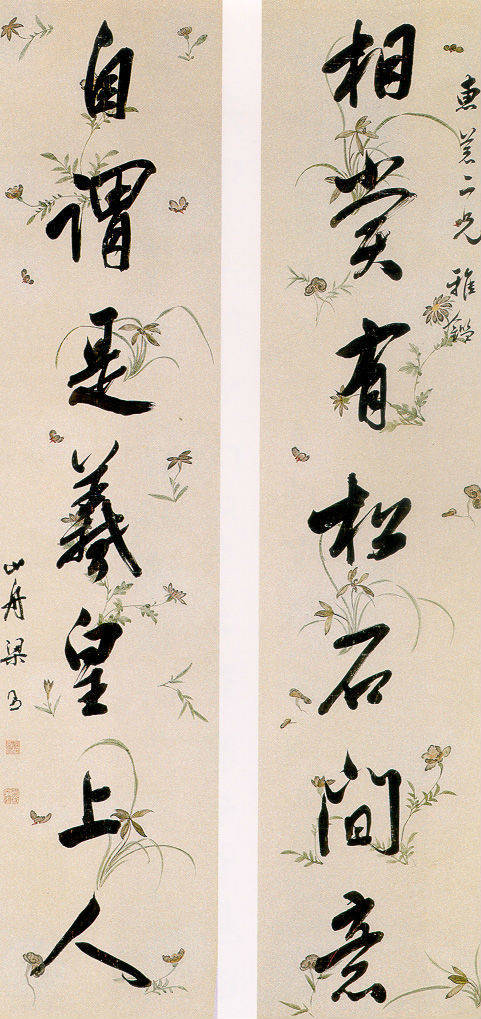 惠
二兄
雅鑑
相賞有松石間意
自謂是羲皇上人
山舟梁